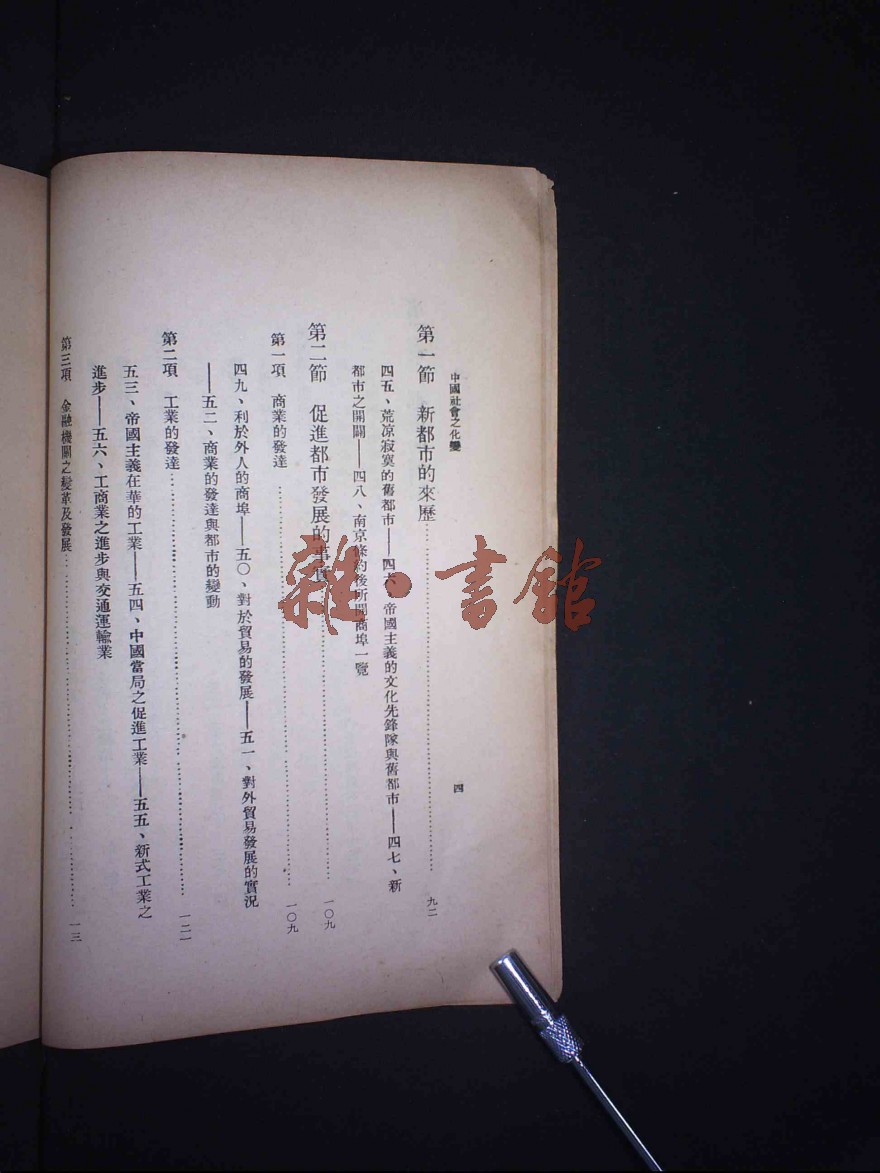 中國社會之化變
四
第一節 新都市的來歷……九二
四五、荒涼寂寞的舊都市——四六、帝國主義的文化先鋒隊與舊都市——四七、新
都市之開闢——四八、南京條約後所開商埠一覽
第二節 促進都市發展的事實……一〇九
第一項 商業的發達……一〇九
四九、利於外人的商埠——五〇、對於貿易的發展——五一、對外貿易發展的實況
——五二、商業的發達與都市的變動
第二項 工業的發達……一二一
五三、帝國主義在華的工業——五四、中國當局之促進工業——五五、新式工業之
進步——五六、工商業之進步與交通運輸業
第三項 金融機關之變革及發展……一三
雜·書館